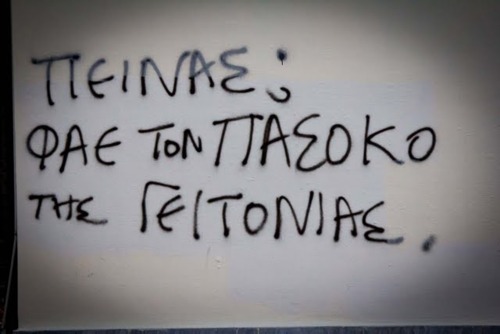 ΠΕΙΝΑΣ;
ΦΑΕ ΤΟΝ ΠΑΣΟΚΟ
ΤΗΣ ΓΕΙΤΟΝΙΑΣ.